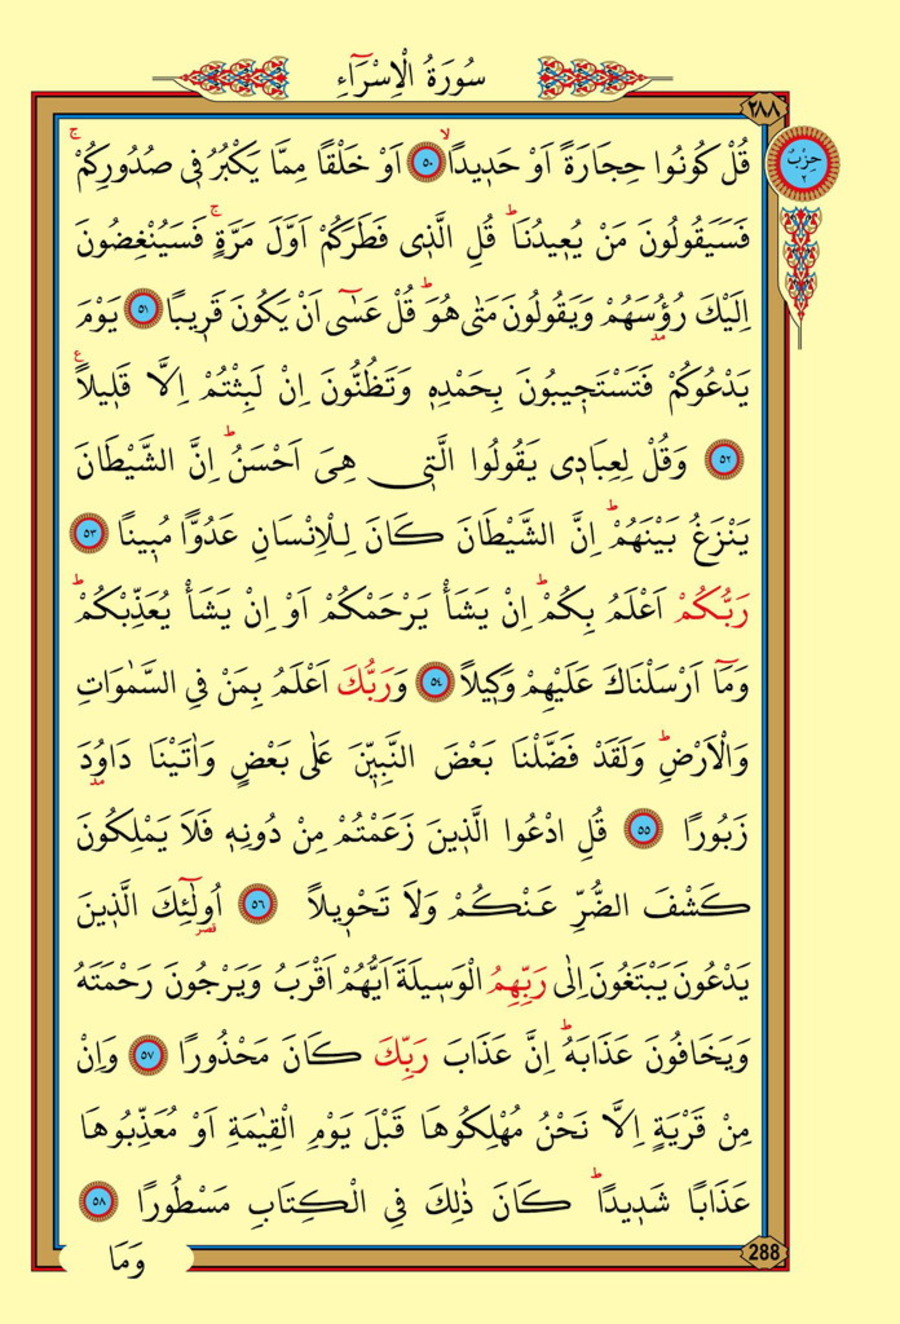 سُورَةُ الْاِسْرَٓاءِ
٢٨٨
حِزْبُ
٢
قُلْ كُونُوا حِجَارَةً اَوْ حَدٖيداًۙ ٥٠ اَوْ خَلْقًا مِمَّا يَكْبُرُ فٖى صُدُورِكُمْۚ
فَسَيَقُولُونَ مَنْ يُعٖيدُنَاۜ قُلِ الَّذٖى فَطَرَكُمْ اَوَّلَ مَرَّةٍۚ فَسَيُنْغِضُونَ
اِلَيْكَ رُؤُ۫سَهُمْ وَيَقُولُونَ مَتٰى هُوَۜ قُلْ عَسٰٓى اَنْ يَكُونَ قَرٖيباً ٥١ يَوْمَ
يَدْعُوكُمْ فَتَسْتَجٖيبُونَ بِحَمْدِهٖ وَتَظُنُّونَ اِنْ لَبِثْتُمْ اِلَّا قَلٖيلاً۟
٥٢ وَقُلْ لِعِبَادٖى يَقُولُوا الَّتٖى هِىَ اَحْسَنُۜ اِنَّ الشَّيْطَانَ
يَنْزَغُ بَيْنَهُمْۜ اِنَّ الشَّيْطَانَ كَانَ لِلْاِنْسَانِ عَدُوًّا مُبٖينًا ٥٣
رَبُّكُمْ اَعْلَمُ بِكُمْۜ اِنْ يَشَأْ يَرْحَمْكُمْ اَوْ اِنْ يَشَأْ يُعَذِّبْكُمْۜ
وَمَٓا اَرْسَلْنَاكَ عَلَيْهِمْ وَكٖيلاً ٥٤ وَرَبُّكَ اَعْلَمُ بِمَنْ فِى السَّمٰوَاتِ
وَالْاَرْضِۜ وَلَقَدْ فَضَّلْنَا بَعْضَ النَّبِيّٖنَ عَلٰى بَعْضٍ وَاٰتَيْنَا دَاوُ۫دَ
زَبُورًا ٥٥ قُلِ ادْعُوا الَّذٖينَ زَعَمْتُمْ مِنْ دُونِهٖ فَلَا يَمْلِكُونَ
كَشْفَ الضُّرِّ عَنْكُمْ وَلَا تَحْوٖيلاً ٥٦ اُو۬لٰٓئِكَ الَّذٖينَ
يَدْعُونَ يَبْتَغُونَ اِلٰى رَبِّهِمُ الْوَسٖيلَةَ اَيُّهُمْ اَقْرَبُ وَيَرْجُونَ رَحْمَتَهُ
وَيَخَافُونَ عَذَابَهُۜ اِنَّ عَذَابَ رَبِّكَ كَانَ مَحْذُورًا ٥٧ وَاِنْ
مِنْ قَرْيَةٍ اِلَّا نَحْنُ مُهْلِكُوهَا قَبْلَ يَوْمِ الْقِيٰمَةِ اَوْ مُعَذِّبُوهَا
عَذَابًا شَدٖيدًاۜ كَانَ ذٰلِكَ فِى الْكِتَابِ مَسْطُورًا ٥٨
288
وَمَا